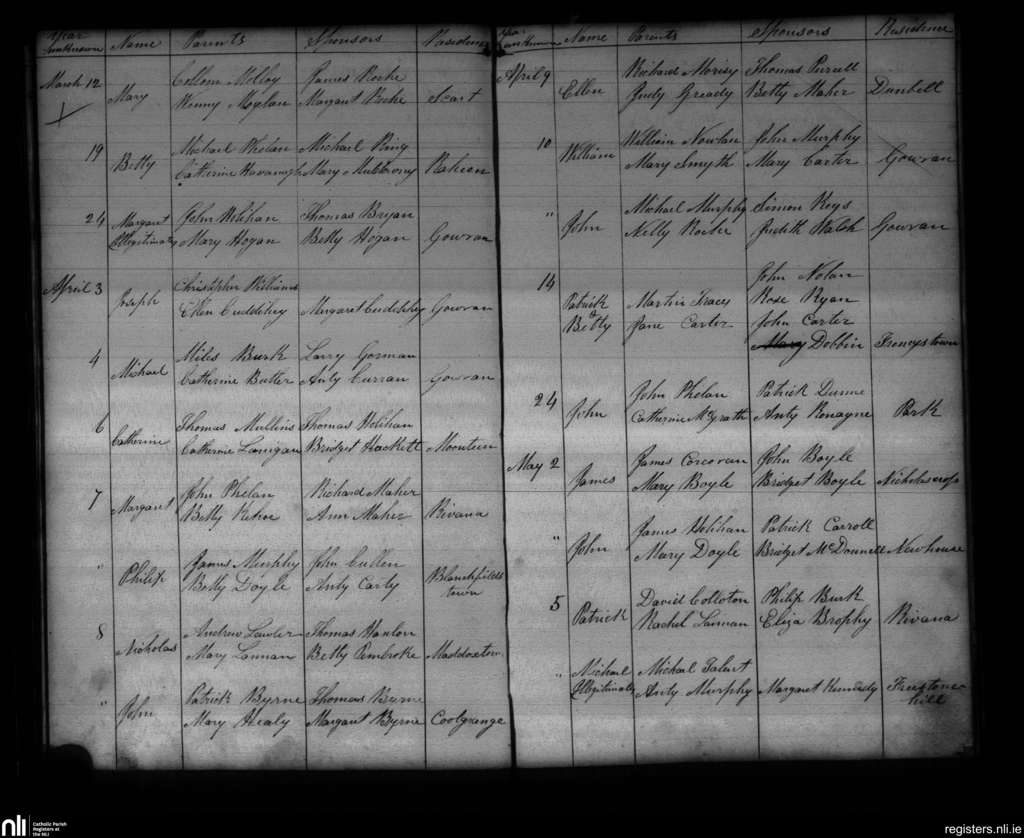 Year unknown Name Parents Sponsors Residence
March 12 Collom Molloy James Roche
Mary Winny Moylan Margaret Roche Scart
19 Michael Phelan Michael Ring
Betty Catherine Kavanagh Mary
24 Margaret John Thomas Bryan
Illegitimate Mary Hogan Betty Hogan Gowran
April 3 Christopher Williams
Joseph Ellen Cuddihy Margaret Cuddihy Gowran
4 Miles Burk Larry Gorman
Michael Catherine Butler Anty Curran Gowran
6 Thomas Mullins Thomas Holihan
Catherine Catherine Lanigan Bridget Hackett Moonteen
7 John Phelan Richard Maher
Margaret Betty Ann Maher Rivana
" James Murphy John Cullen
Philip Betty Doyle Anty Carty Blanchfields
town
8 Andrew Lawler Thomas Hanlon
Nicholas Mary Lannan Betty Pembroke Maddoxtown
" Patrick Byrne Thomas Byrne
John Mary Healy Margaret Byrne Coolgrange
Year unknown Name Parents Sponsors Residence
April 9 Richard Morisy Thomas Purcell
Ellen Judy Gready Betty Maher Dunbell
10 William Nowlan John Murphy
William Mary Smyth Mary Carter Gowran
" Michael Murphy Simon Keys
John Nelly Roche Judith Walsh Gowran
14 John Nolan
Patrick Martin Tracy Rose Ryan
& Betty Jane Carter John Carter
Mary Dobbin Freneystown
24 John Phelan Patrick Dunne
John Catherine McGrath Anty Ronayne Park
May 2 James Corcoran John Boyle
James Mary Boyle Bridget Boyle Nicholscross
" James Holihan Patrick Carroll
John Mary Doyle Bridget McDonnell Newhouse
5 David Colloton Philip Burk
Patrick Rachel Lannan Eliza Brophy Rivana
" Michael Michael Talent
Illegitimate Anty Murphy Margaret Kennedy Freestone
hill
nli Catholic Parish
Registers at
the NLI
registers.nli.ie